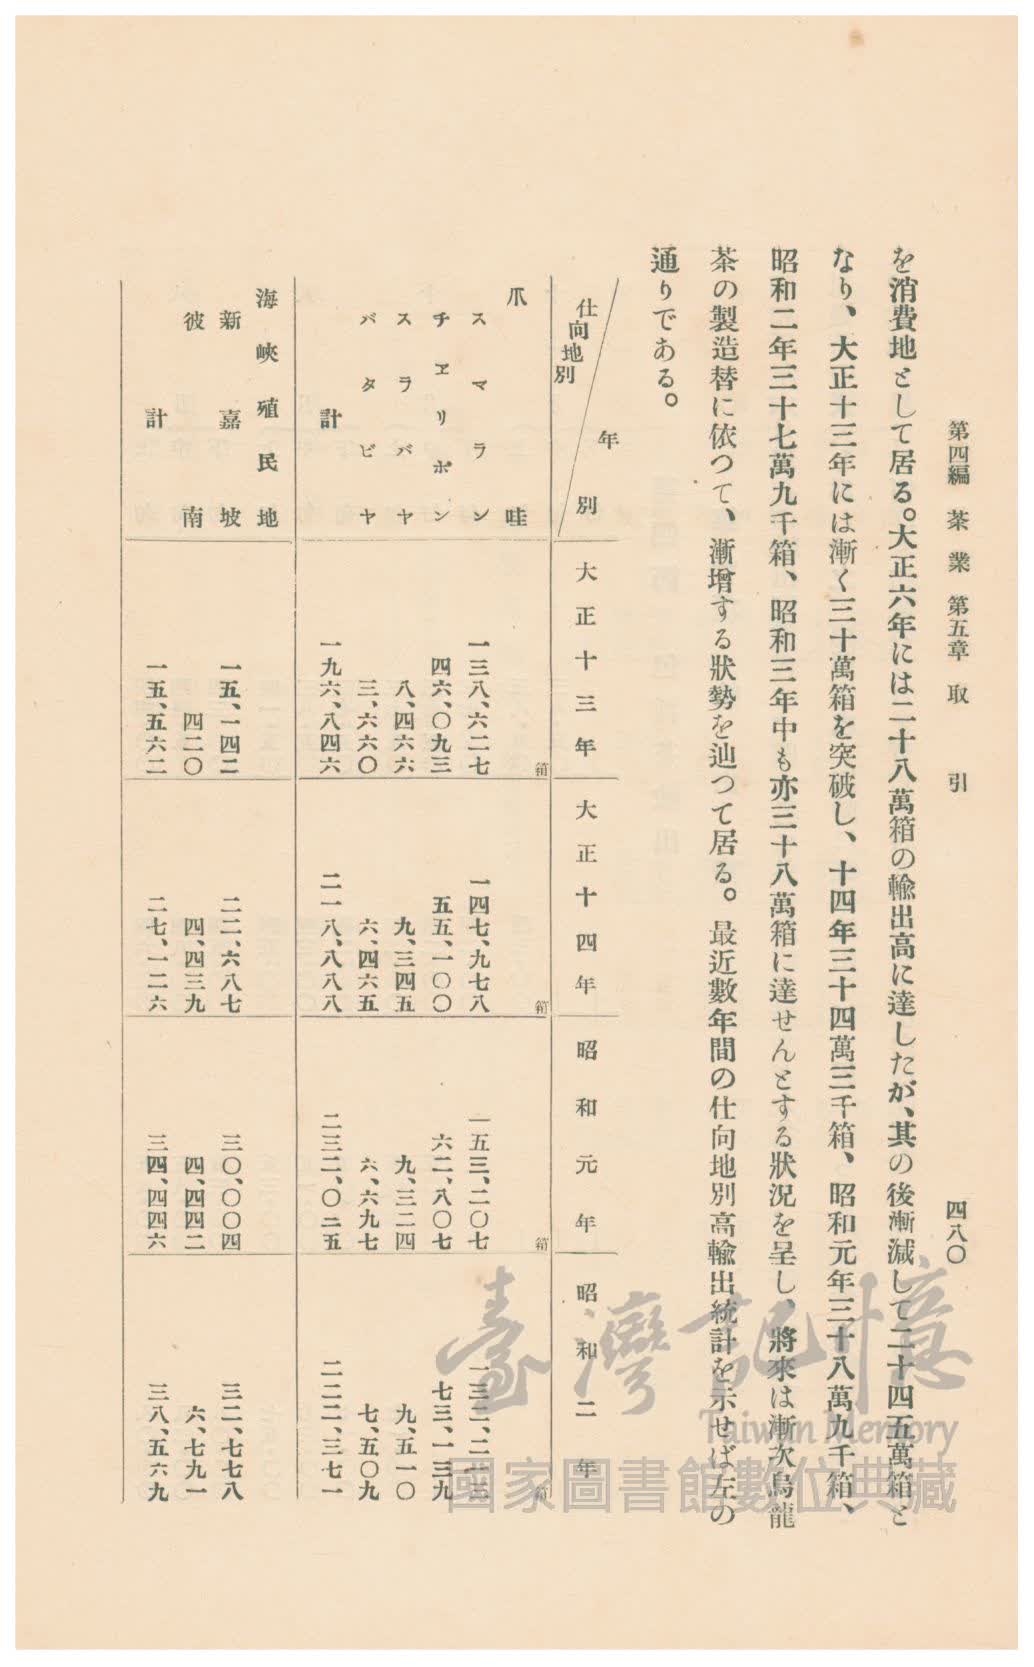 第四編 茶業 第五章 取引 四八〇
を消費地として居る。大正六年には二十八萬箱の輸出高に達したが、其の後漸減して二十四五萬箱と
なり、大正十三年には漸く三十萬箱を突破し、十四年三十四萬三千箱、昭和元年三十八萬九千箱、
昭和二年三十七萬九千箱、昭和三年中も亦三十八萬箱に達せんとする狀況を呈し、將來は漸次烏龍
茶の製造替に依つて、漸增する狀勢を辿つて居る。最近數年間の仕向地別高輸出統計を示せば左の
通りである。
仕向地別 年別 大正十三年 大正十四年 昭和元年 昭和二年
爪哇 箱 箱 箱 箱
スマラン 一三八、六二七 一四七、九七八 一五三、二〇七 一三二、二一三
チエリボン 四六、〇九三 五五、一〇〇 六二、八〇七 七三、一三九
スラバヤ 八、四六六 九、三四五 九、三二四 九、五一〇
バタビヤ 三、六六〇 六、四六五 六、六九七 七、五〇九
計 一九六、八四六 二一八、八八八 二三二、〇二五 二二二、三七一
海峽殖民地
新嘉坡 一五、一四二 二二、六八七 三〇、〇〇四 三二、七七八
彼南 四二〇 四、四三九 四、四四二 六、七九一
計 一五、五六二 二七、一二六 三四、四四六 三八、五六九
臺灣記憶
Taiwan Memory
國家圖書館數位典藏